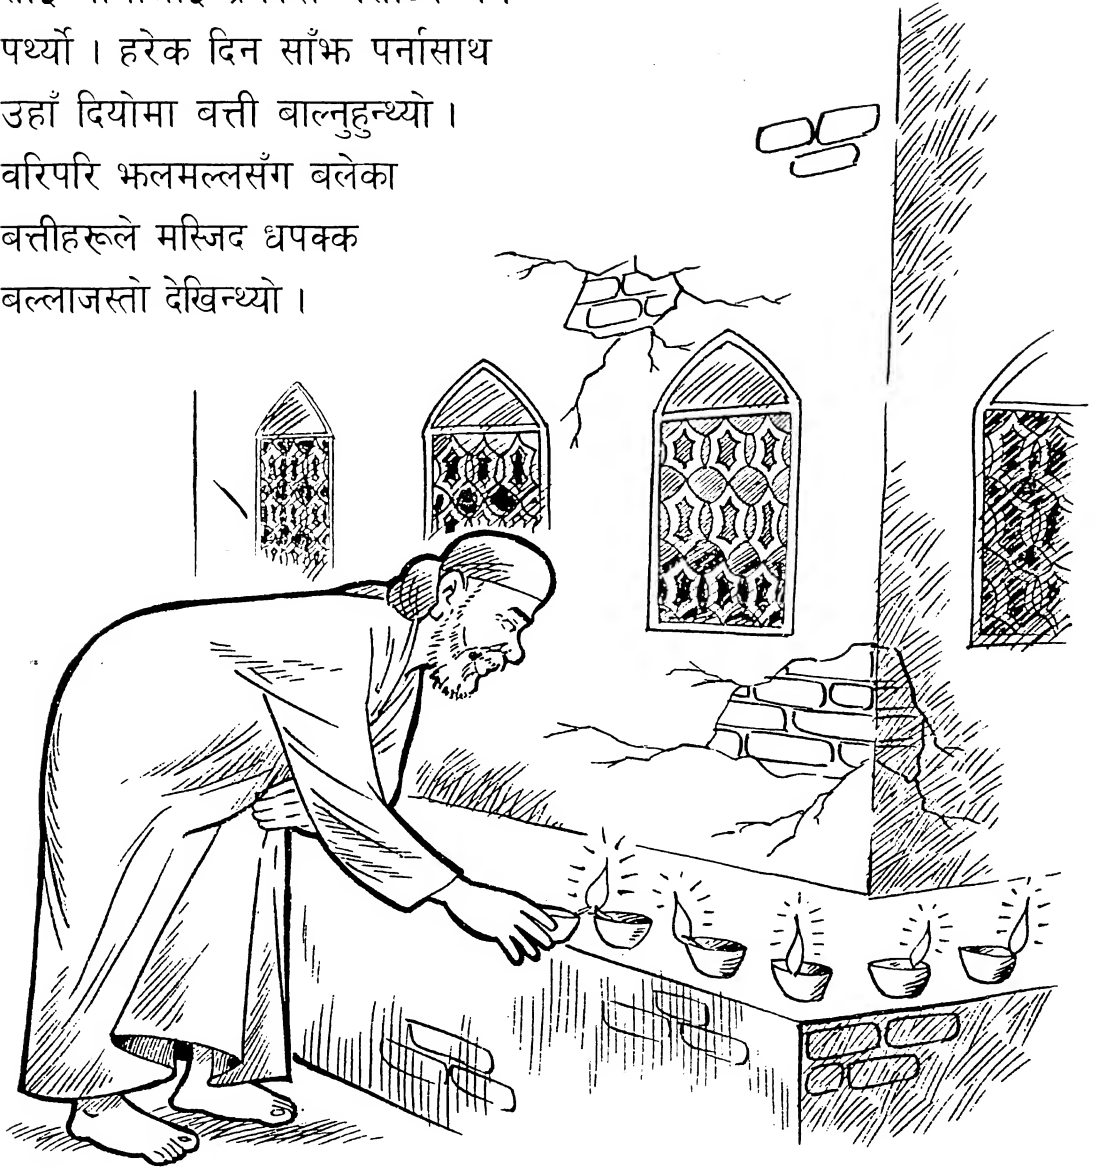 पर्थ्यो । हरेक दिन साँझ पर्नासाथ
उहाँ दियोमा बत्ती बाल्नुहुन्थ्यो ।
वरिपरि झलमल्लसँग बलेका
बत्तीहरूले मस्जिद धपक्क
बल्लाजस्तो देखिन्थ्यो ।